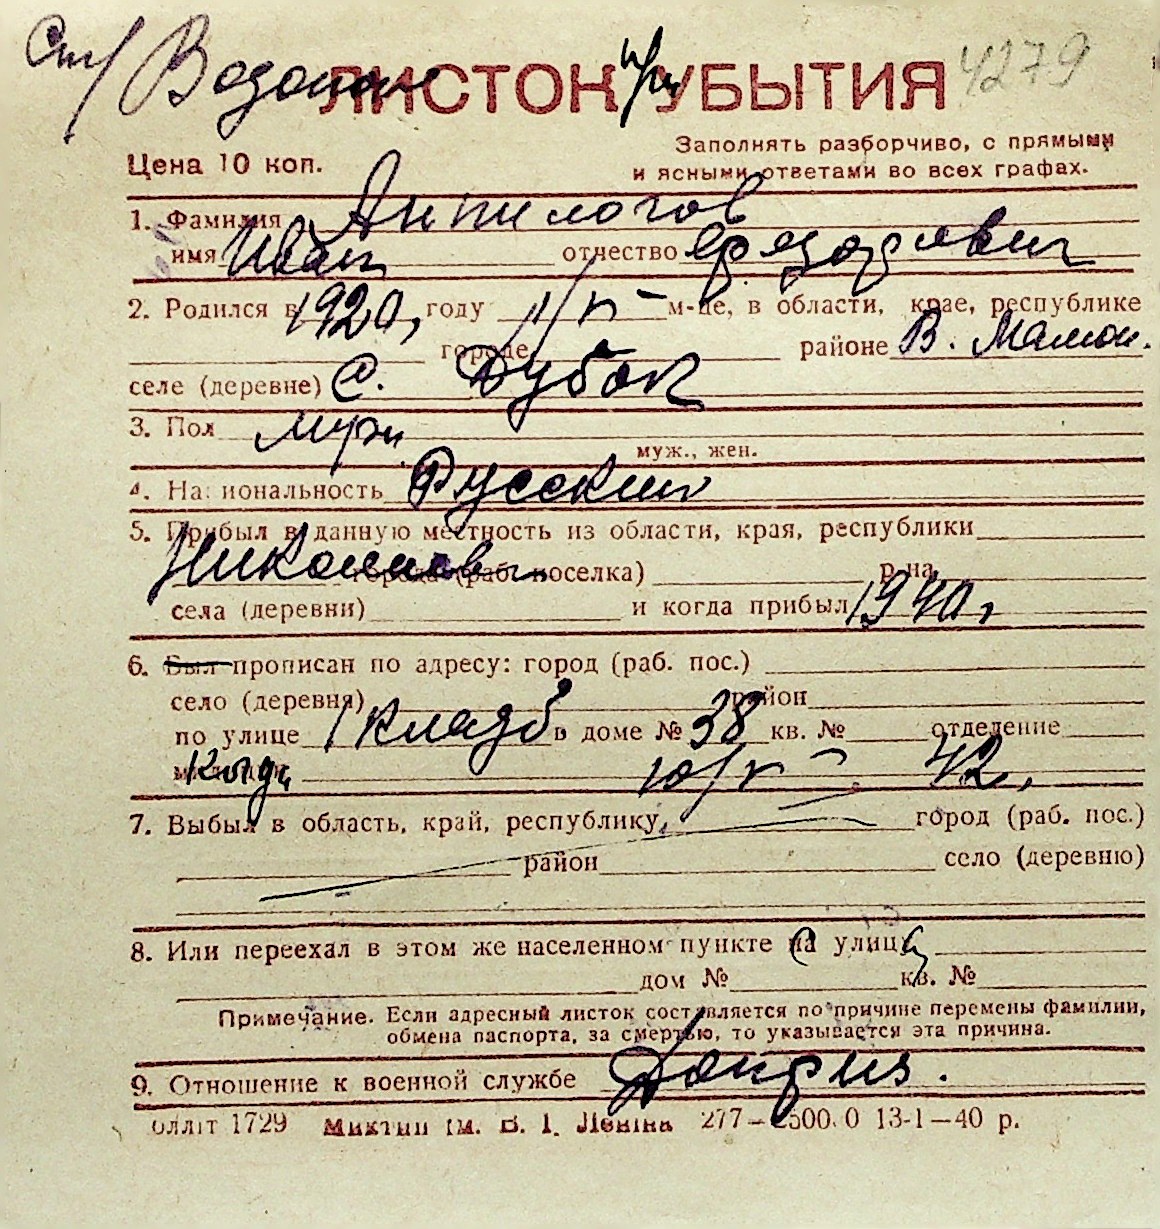 Ст/ Водопой
ЛИСТОК УБЫТИЯ 4279
Цена 10 коп.
Заполнять разборчиво, с прямыми
и ясными ответами во всех графах.
1. Фамилия Анпилогов
имя Иван отчество Федорович
2. Родился в 1920, году м-це, в области, крае, республике
городе районе В. Мамон.
селе (деревне) с. Дубок
3. Пол муж
муж., жен.
4. Национальность Русский
5. Прибыл в данную местность из области, края, республики
Николаев города (раб. поселка) р-на
села (деревни) и когда прибыл 1940 г
6. Был прописан по адресу: город (раб. пос.)
село (деревня) район
по улице 1 Кладб в доме № 38 кв. № отделение
42,
7. Выбыл в область, край, республику, город (раб. пос.)
район село (деревню)
8. Или переехал в этом же населенном пункте на улицу
дом № кв. №
Примечание. Если адресный листок составляется по причине перемены фамилии,
обмена паспорта, за смертью, то указывается эта причина.
9. Отношение к военной службе Доприз.
1729 В. І. Леніна 277— 13-1—40 р.